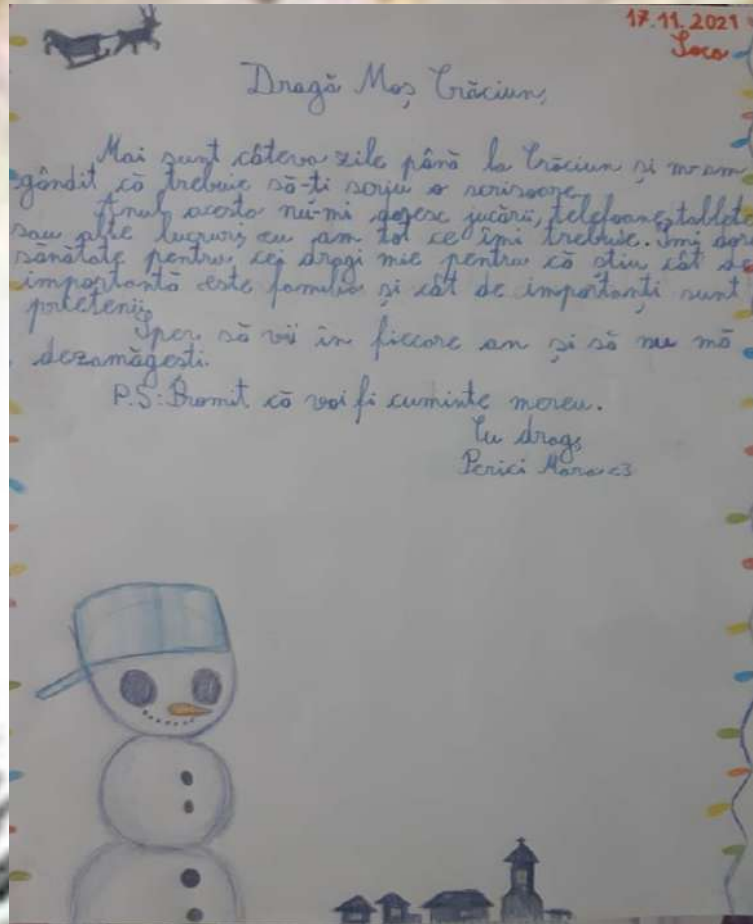 17.11.2021
Soca
Dragă Moș Crăciun,
Mai sunt câteva zile până la Crăciun și m-am
gândit că trebuie să-ți scriu o scrisoare.
Anul acesta nu-mi doresc jucării, telefoane, tablete
sau alte lucruri, eu am tot ce îmi trebuie. Îmi dor
sănătate pentru cei dragi mie pentru că știu cât de
importantă este familia și cât de importanți sunt
prietenii.
Sper să vii în fiecare an și să nu mă
dezamăgești.
P.S: Promit că voi fi cuminte mereu.
Cu drag,
Perici Mara <3